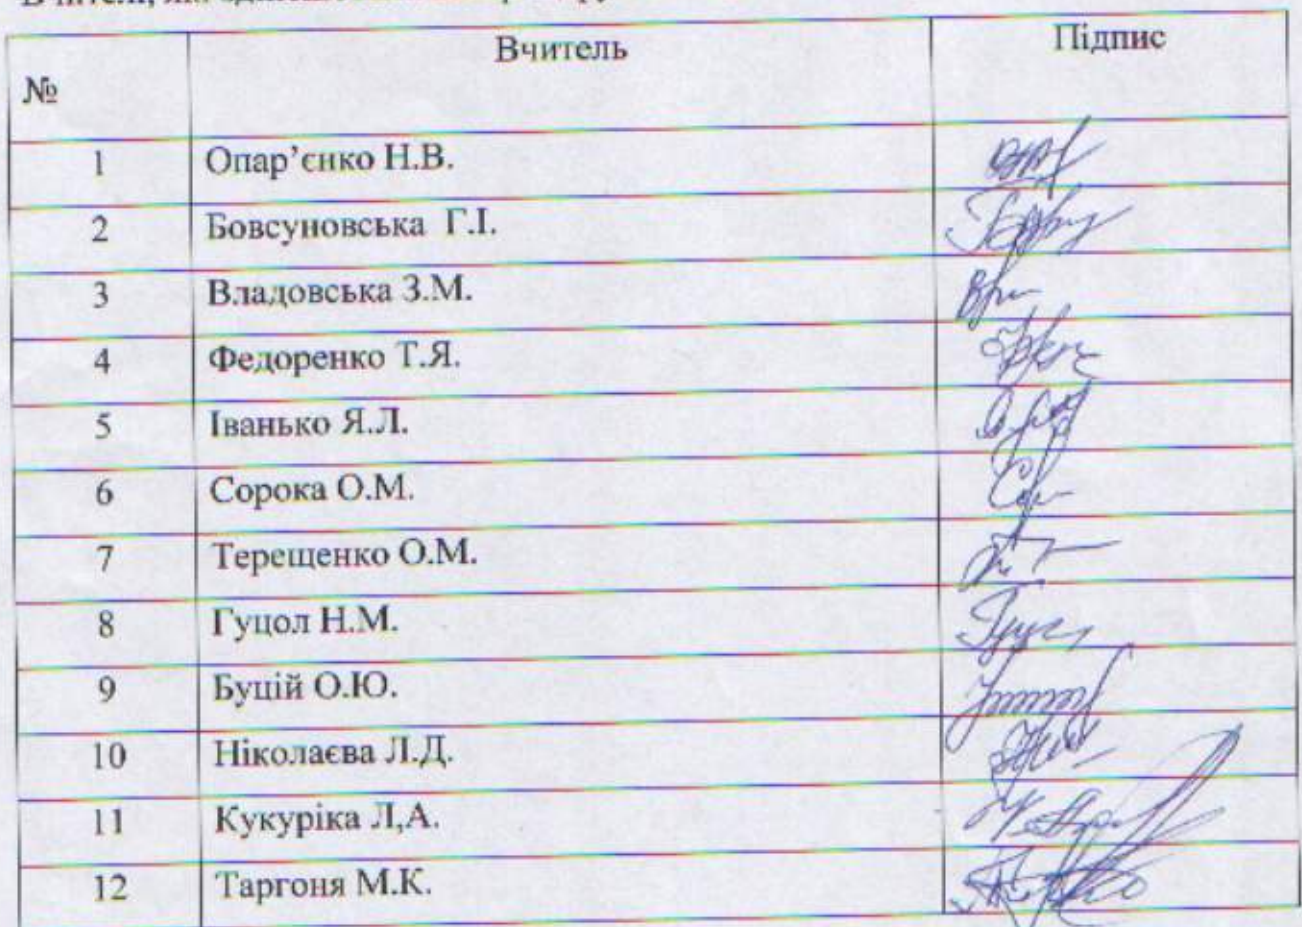 Вчитель
Підпис
№
1 Опар’єнко Н.В.
2 Бовсуновська Г.І.
3 Владовська З.М.
4 Федоренко Т.Я.
5 Іванько Я.Л.
6 Сорока О.М.
7 Терещенко О.М.
8 Гуцол Н.М.
9 Буцій О.Ю.
10 Ніколаєва Л.Д.
11 Кукуріка Л,А.
12 Таргоня М.К.